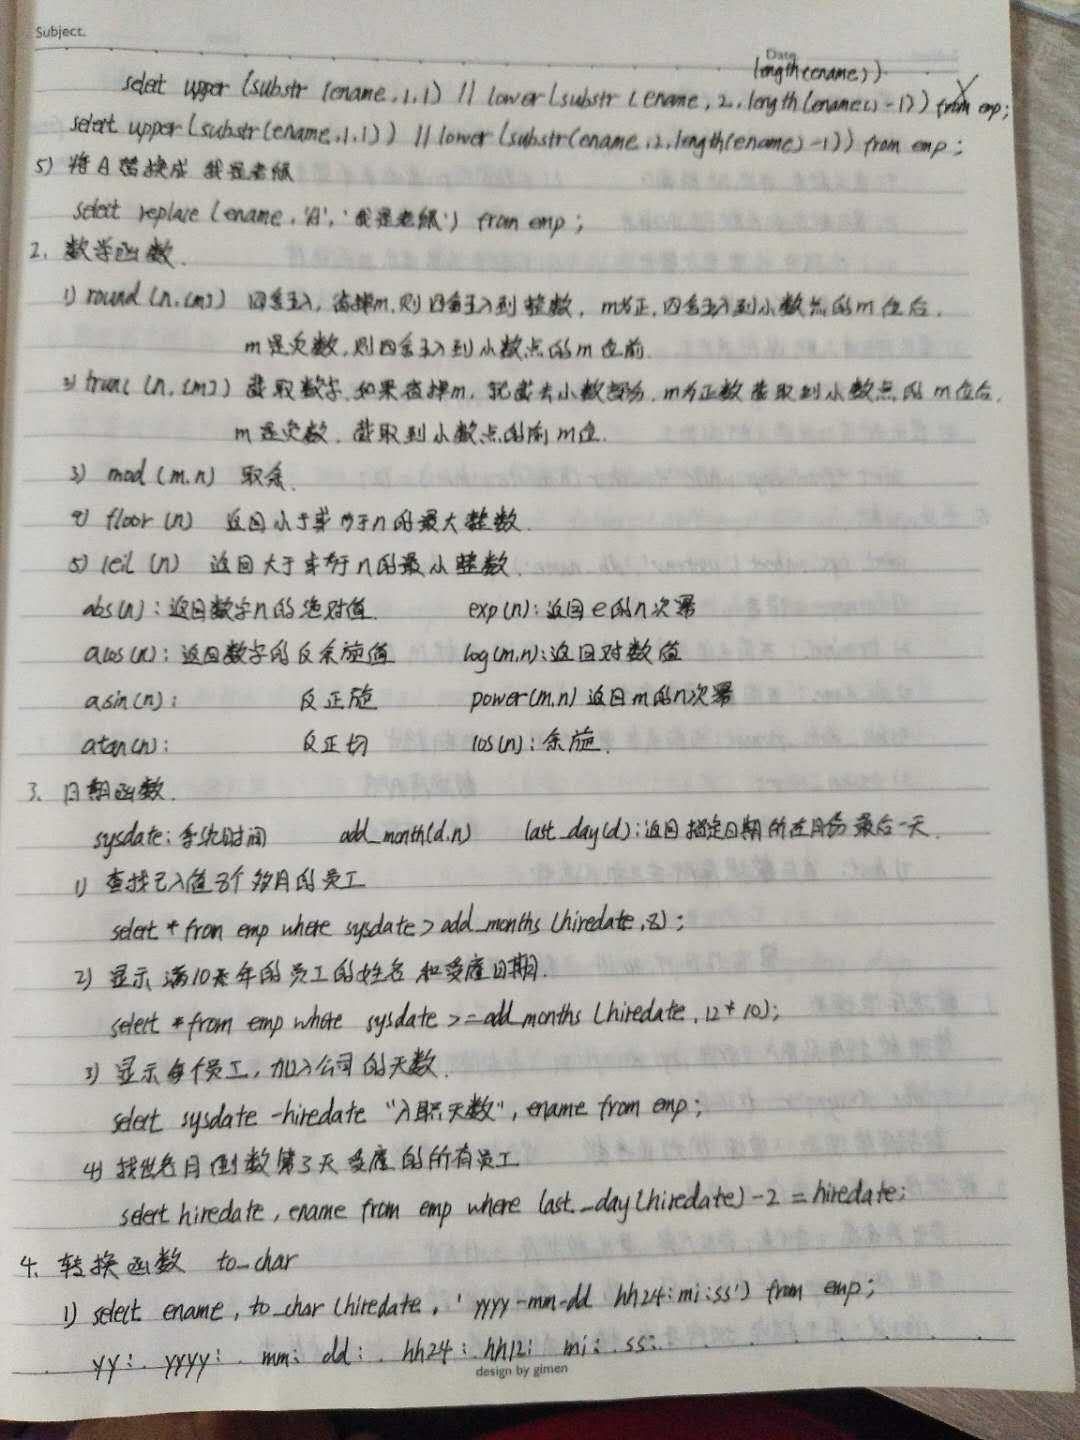 Subject.
Date
length(ename))
select upper (substr (ename,1,1) || lower(substr (ename, 2, length(ename()-1)) from emp;
select upper(substr(ename,1,1)) || lower(substr(ename,2,length(ename)-1)) from emp;
5) 将A替换成 我是老鼠
select replace (ename,'A','我是老鼠') from emp;
2. 数学函数.
1) round (n,[m]) 四舍五入, 省掉m,则四舍五入到整数, m为正,四舍五入到小数点的m位后.
m是负数,则四舍五入到小数点的m位前.
2) trunc (n,[m]) 截取数字 如果省掉m, 就截去小数部分, m为正数截取到小数点的m位后,
m是负数, 截取到小数点的前m位.
3) mod (m,n) 取余.
4) floor (n) 返回小于或等于n的最大整数.
5) ceil (n) 返回大于或等于n的最小整数.
abs(n): 返回数字n的绝对值 exp(n): 返回e的n次幂
acos(n): 返回数字的反余旋值 log(m,n):返回对数值
asin(n): 反正旋 power(m,n) 返回m的n次幂
atan(n): 反正切 cos(n): 余旋.
3、日期函数.
sysdate: 系统时间 add_month(d,n) last_day(d):返回指定日期所在月份最后一天.
1) 查找已入值8个多月的员工
select * from emp where sysdate > add_months (hiredate,8);
2) 显示满10年的员工的姓名和受雇日期.
select * from emp where sysdate >= add_months (hiredate, 12*10);
3) 显示每个员工, 加入公司的天数.
select sysdate -hiredate "入职天数", ename from emp;
4) 找出各月倒数第3天受雇的所有员工
select hiredate, ename from emp where last_day(hiredate)-2 = hiredate;
4. 转换函数 to_char
1) select ename, to_char (hiredate, 'yyyy-mm-dd hh24:mi:ss') from emp;
yy: yyyy: mm: dd: hh24: hh12: mi: ss:
design by gimen